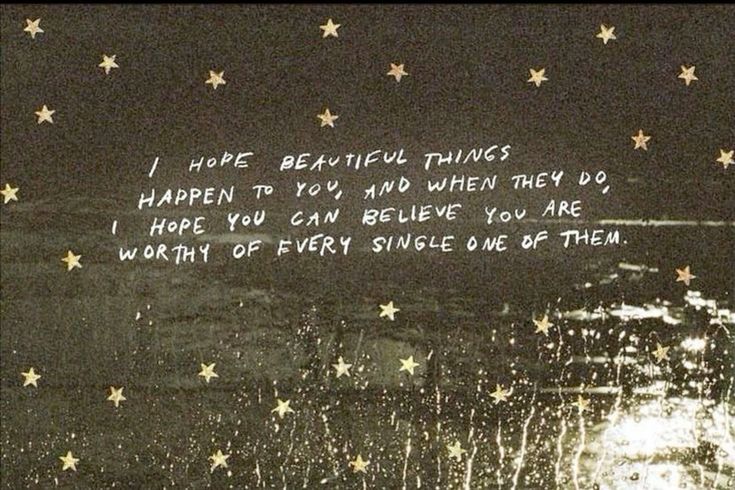 I HOPE BEAUTIFUL THINGS
HAPPEN TO YOU, AND WHEN THEY DO,
I HOPE YOU CAN BELIEVE YOU ARE
WORTHY OF EVERY SINGLE ONE OF THEM.